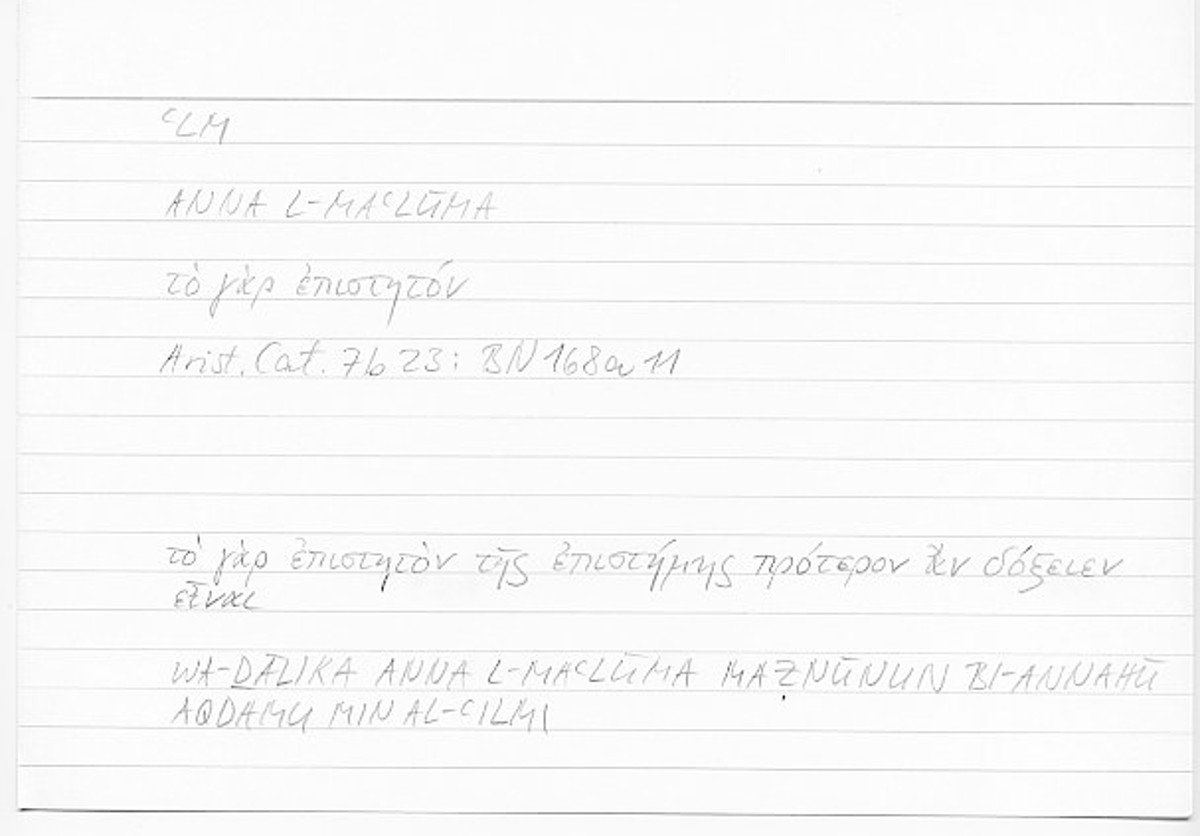 ᶜLM
ANNA L-MAᶜLŪMA
τὸ γὰρ ἐπιστητόν
Arist. Cat. 7b 23: BN 168a 11
τὸ γὰρ ἐπιστητὸν τῆς ἐπιστήμης πρότερον ἂν δόξειεν
εἶναι
WA-D̲ĀLIKA ANNA L-MAᶜLŪMA MAẒNŪNUN BI-ANNAHŪ
AQDAMU MIN AL-ᶜILMI